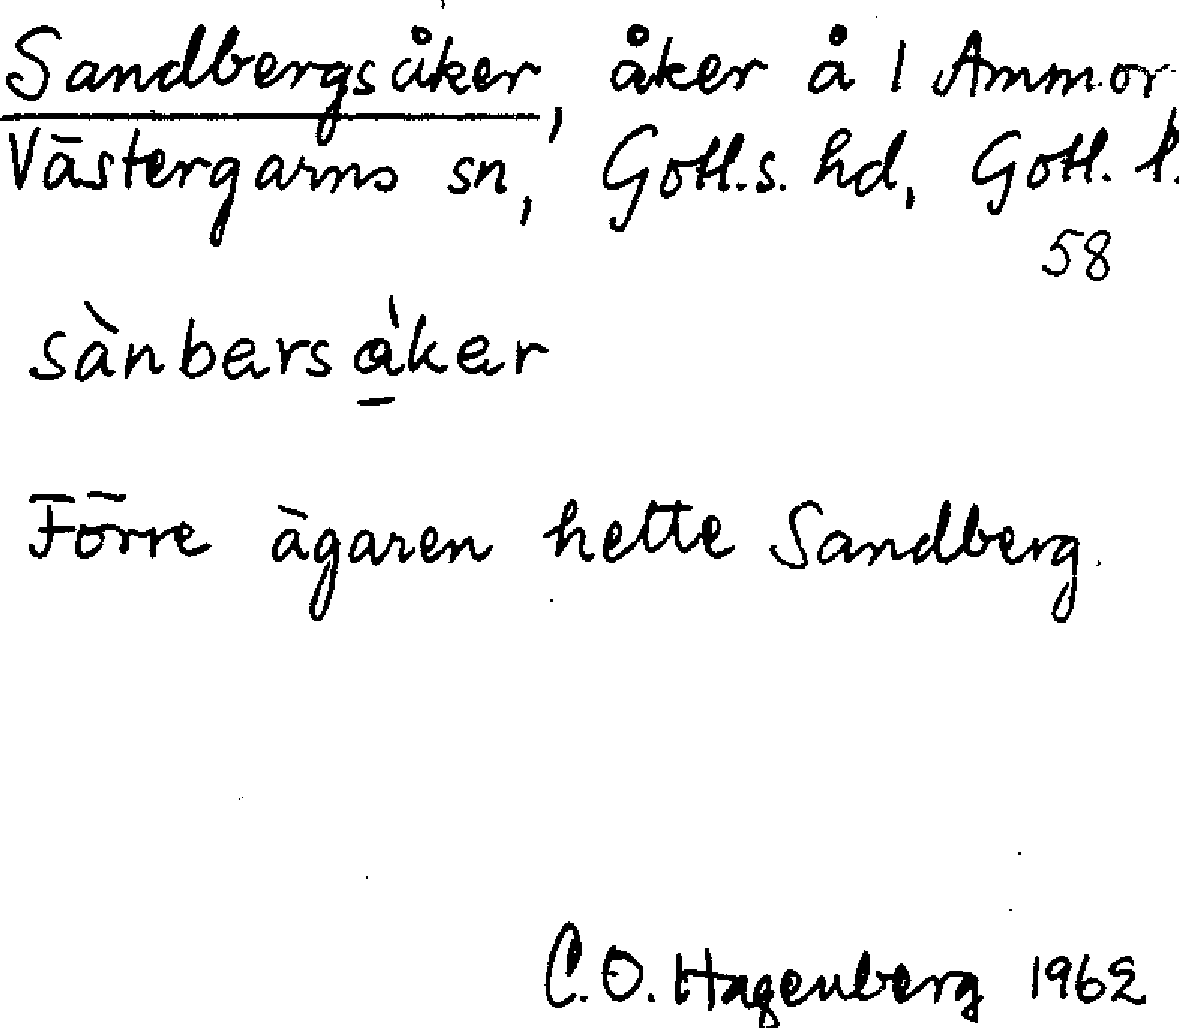 Sandbergsåker, åker å 1 Ammor,
Västergarns sn, Gotl.s. hd, Gotl. l.
58
sànbersàker
Förre ägaren hette Sandberg.
C.O. Hagenberg 1962